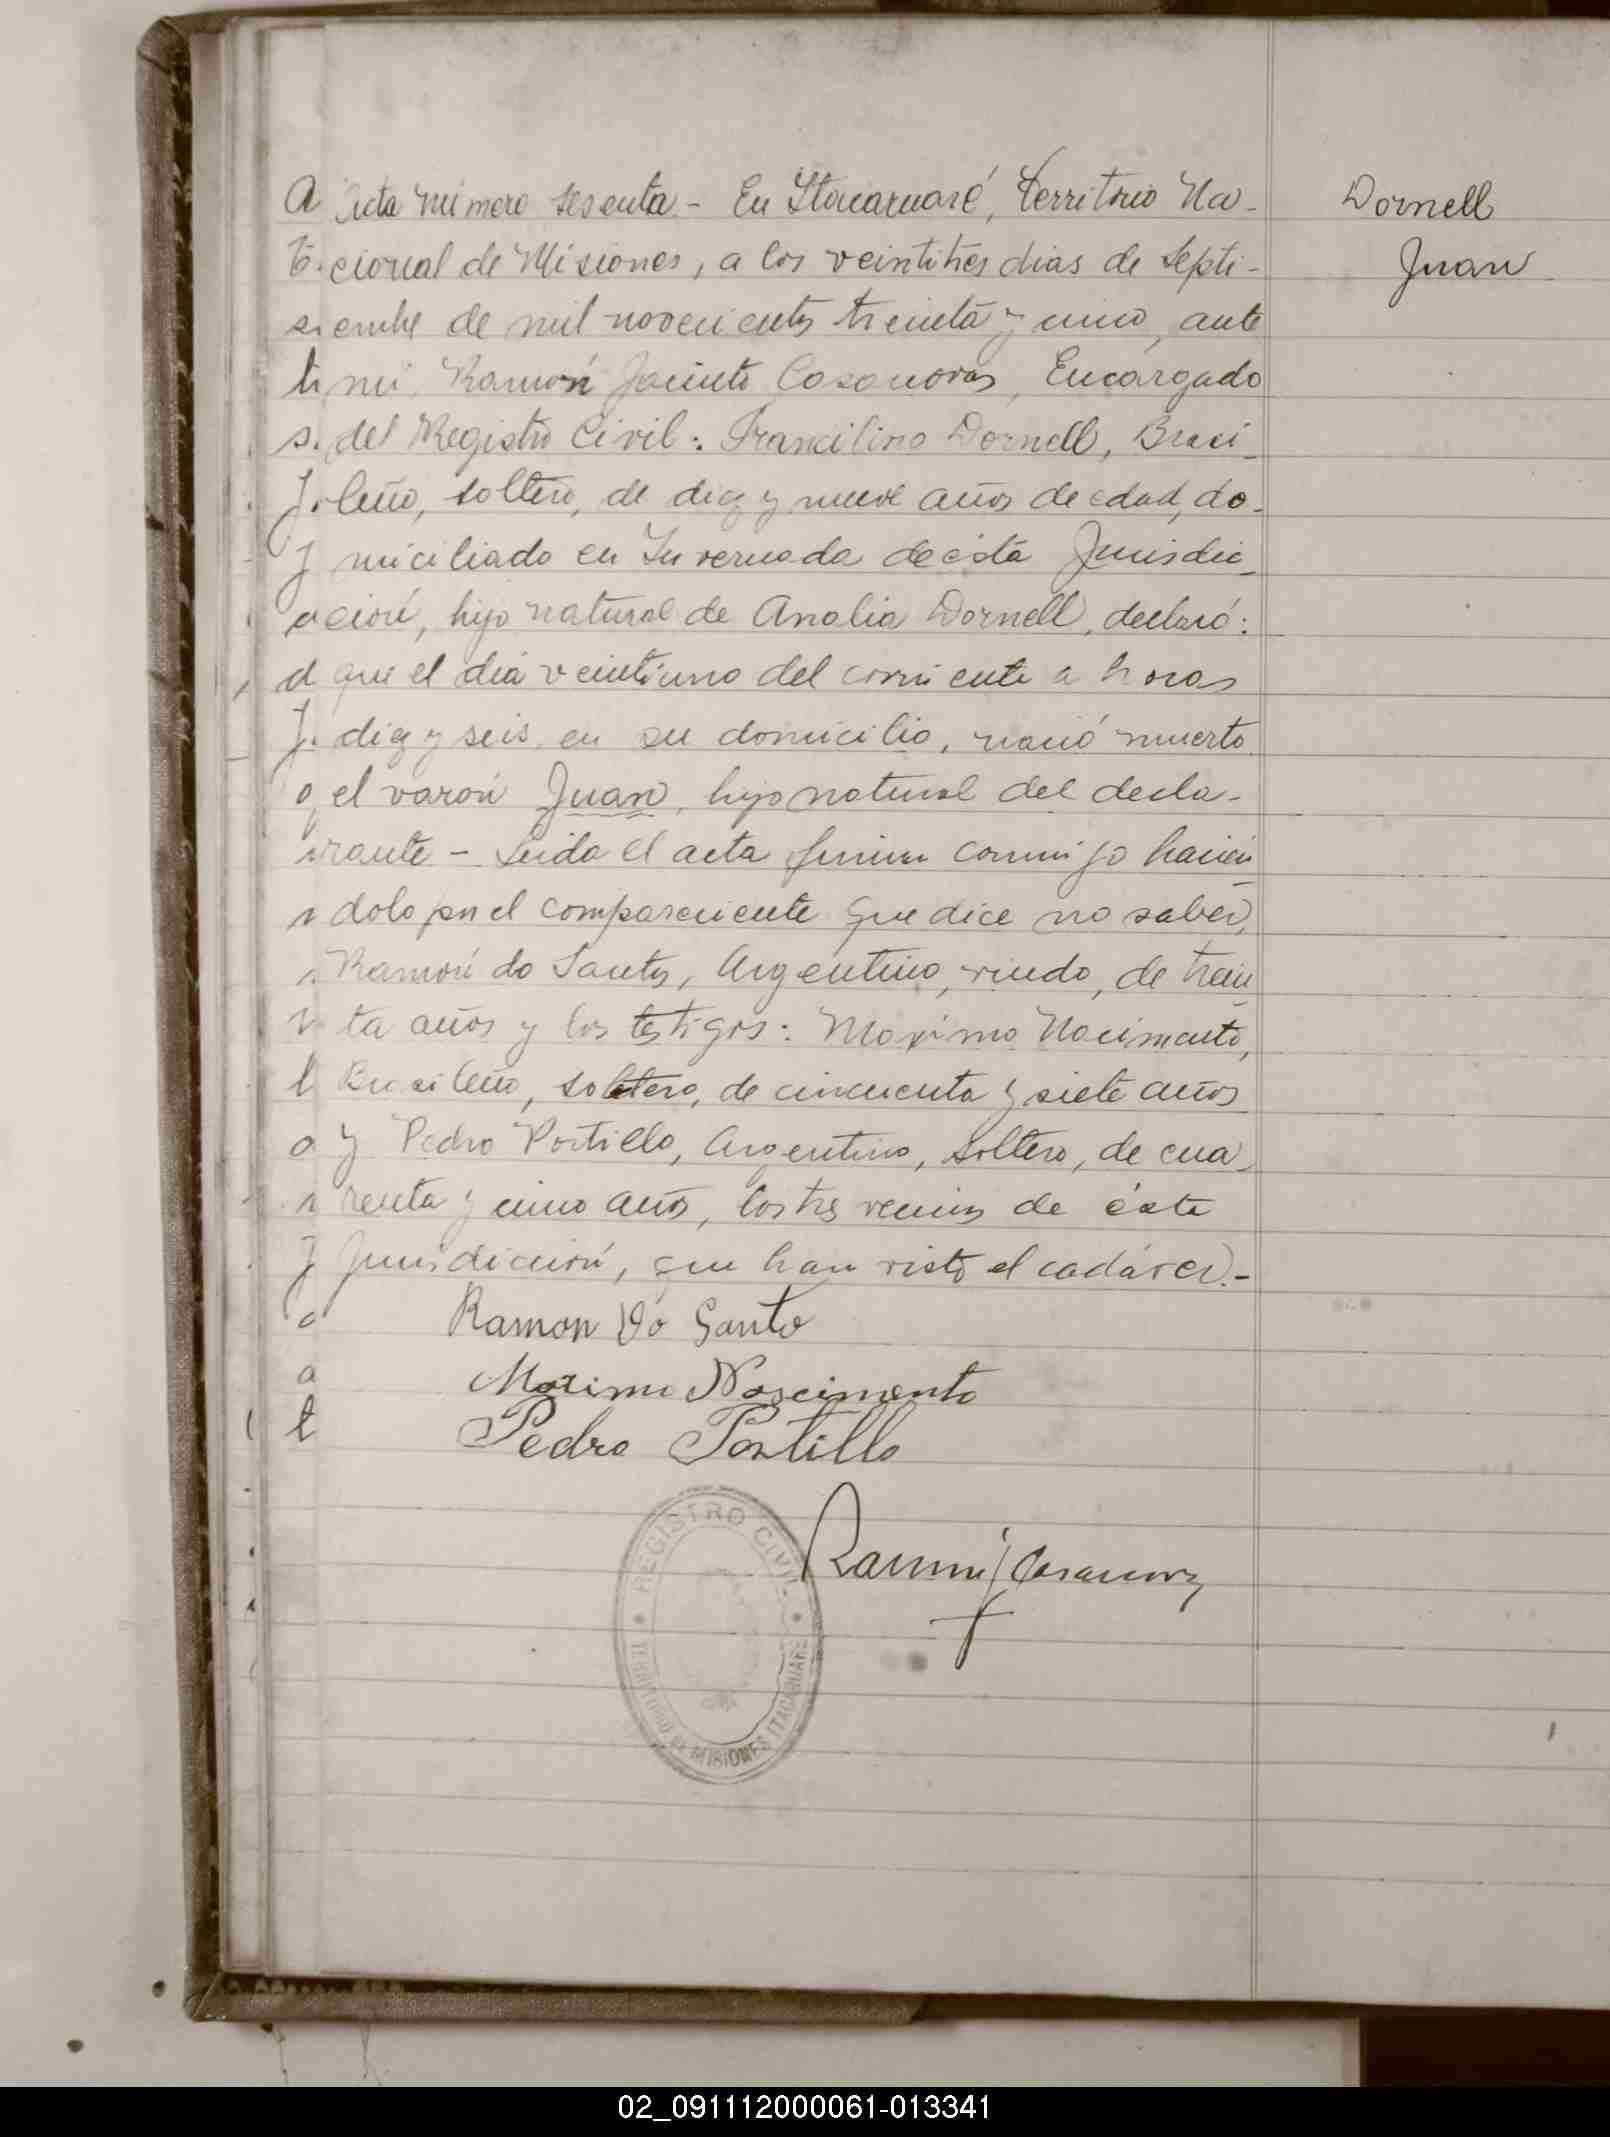 Acta número sesenta.- En Itacaruaré, Territorio Na-
cional de Misiones, a los veintitres dias de Septi-
embre de mil novecientos treinta y uno, ante
mi, Ramón Jacinto Casanovas, Encargado
del Registro Civil: Francilino Dornell, Brasi_
leño, soltero, de diez y nueve años de edad, do_
miciliado en Invernada de ésta Jurisdic_
ción, hijo natural de Analia Dornell, declaró:
que el dia veintiuno del corriente a horas
diez y seis, en su domicilio, nació muerto
el varón Juan, hijo natural del decla-
rante - Leida el acta firman conmigo hacién
dolo por el compareciente que dice no saber,
Ramón do Santos, Argentino, viudo, de trein
ta años y los testigos: Maximo Nacimento,
Brasileño, soltero, de cincuenta y siete años
y Pedro Portillo, Argentino, soltero, de cua_
renta y uno años, los tres vecinos de ésta
Jurisdicción, que han visto el cadáver.-
Ramon Do Santo
Maximo Nascimento
Pedro Portillo
Ramón J Casanovas
REGISTRO CIVIL
TERRITORIO DE MISIONES ITACARUARE
Dornell
Juan
02_091112000061-013341